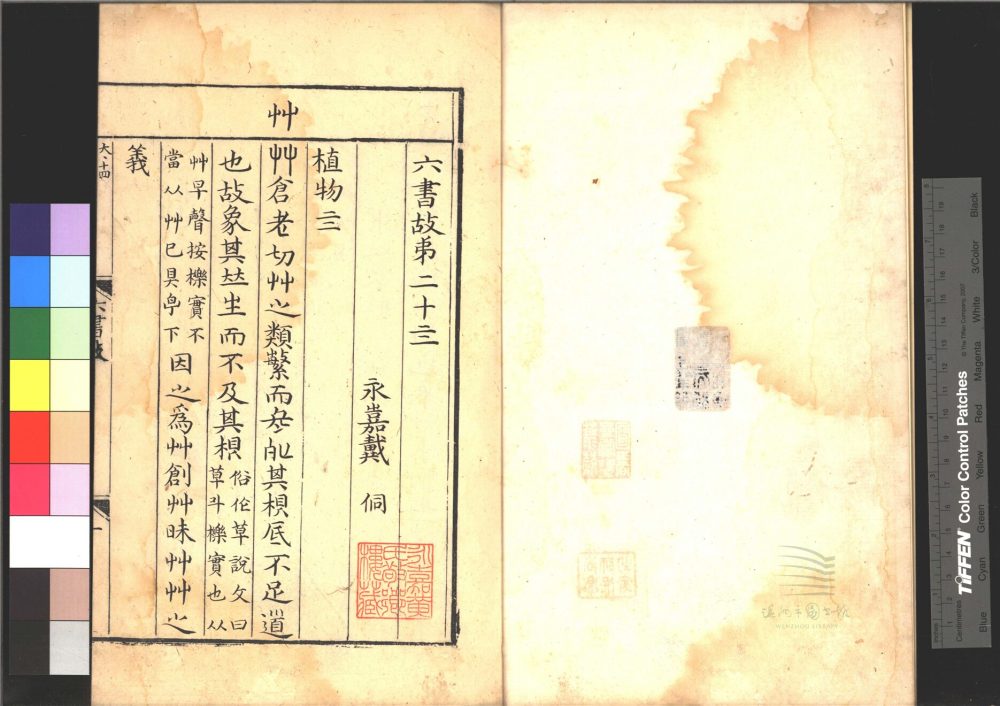 艸
六書故弟二十三
永嘉戴　侗
植物三
艸倉老切艸之類蘩而其根氐不足
也故象其竝生而不及其根俗作草說文曰草斗櫟實也从
艸早聲按櫟實不當从艸已具皁下因之爲艸創艸昧艸艸之
義
大、十四
六書故
一
永嘉黃氏
樓藏
WENZHOU LIBRARY
TIFFEN Color Control Patches
© The Tiffen Company, 2007
Blue Cyan Green Yellow Red Magenta White 3/Color Black
Centimetres
Inches